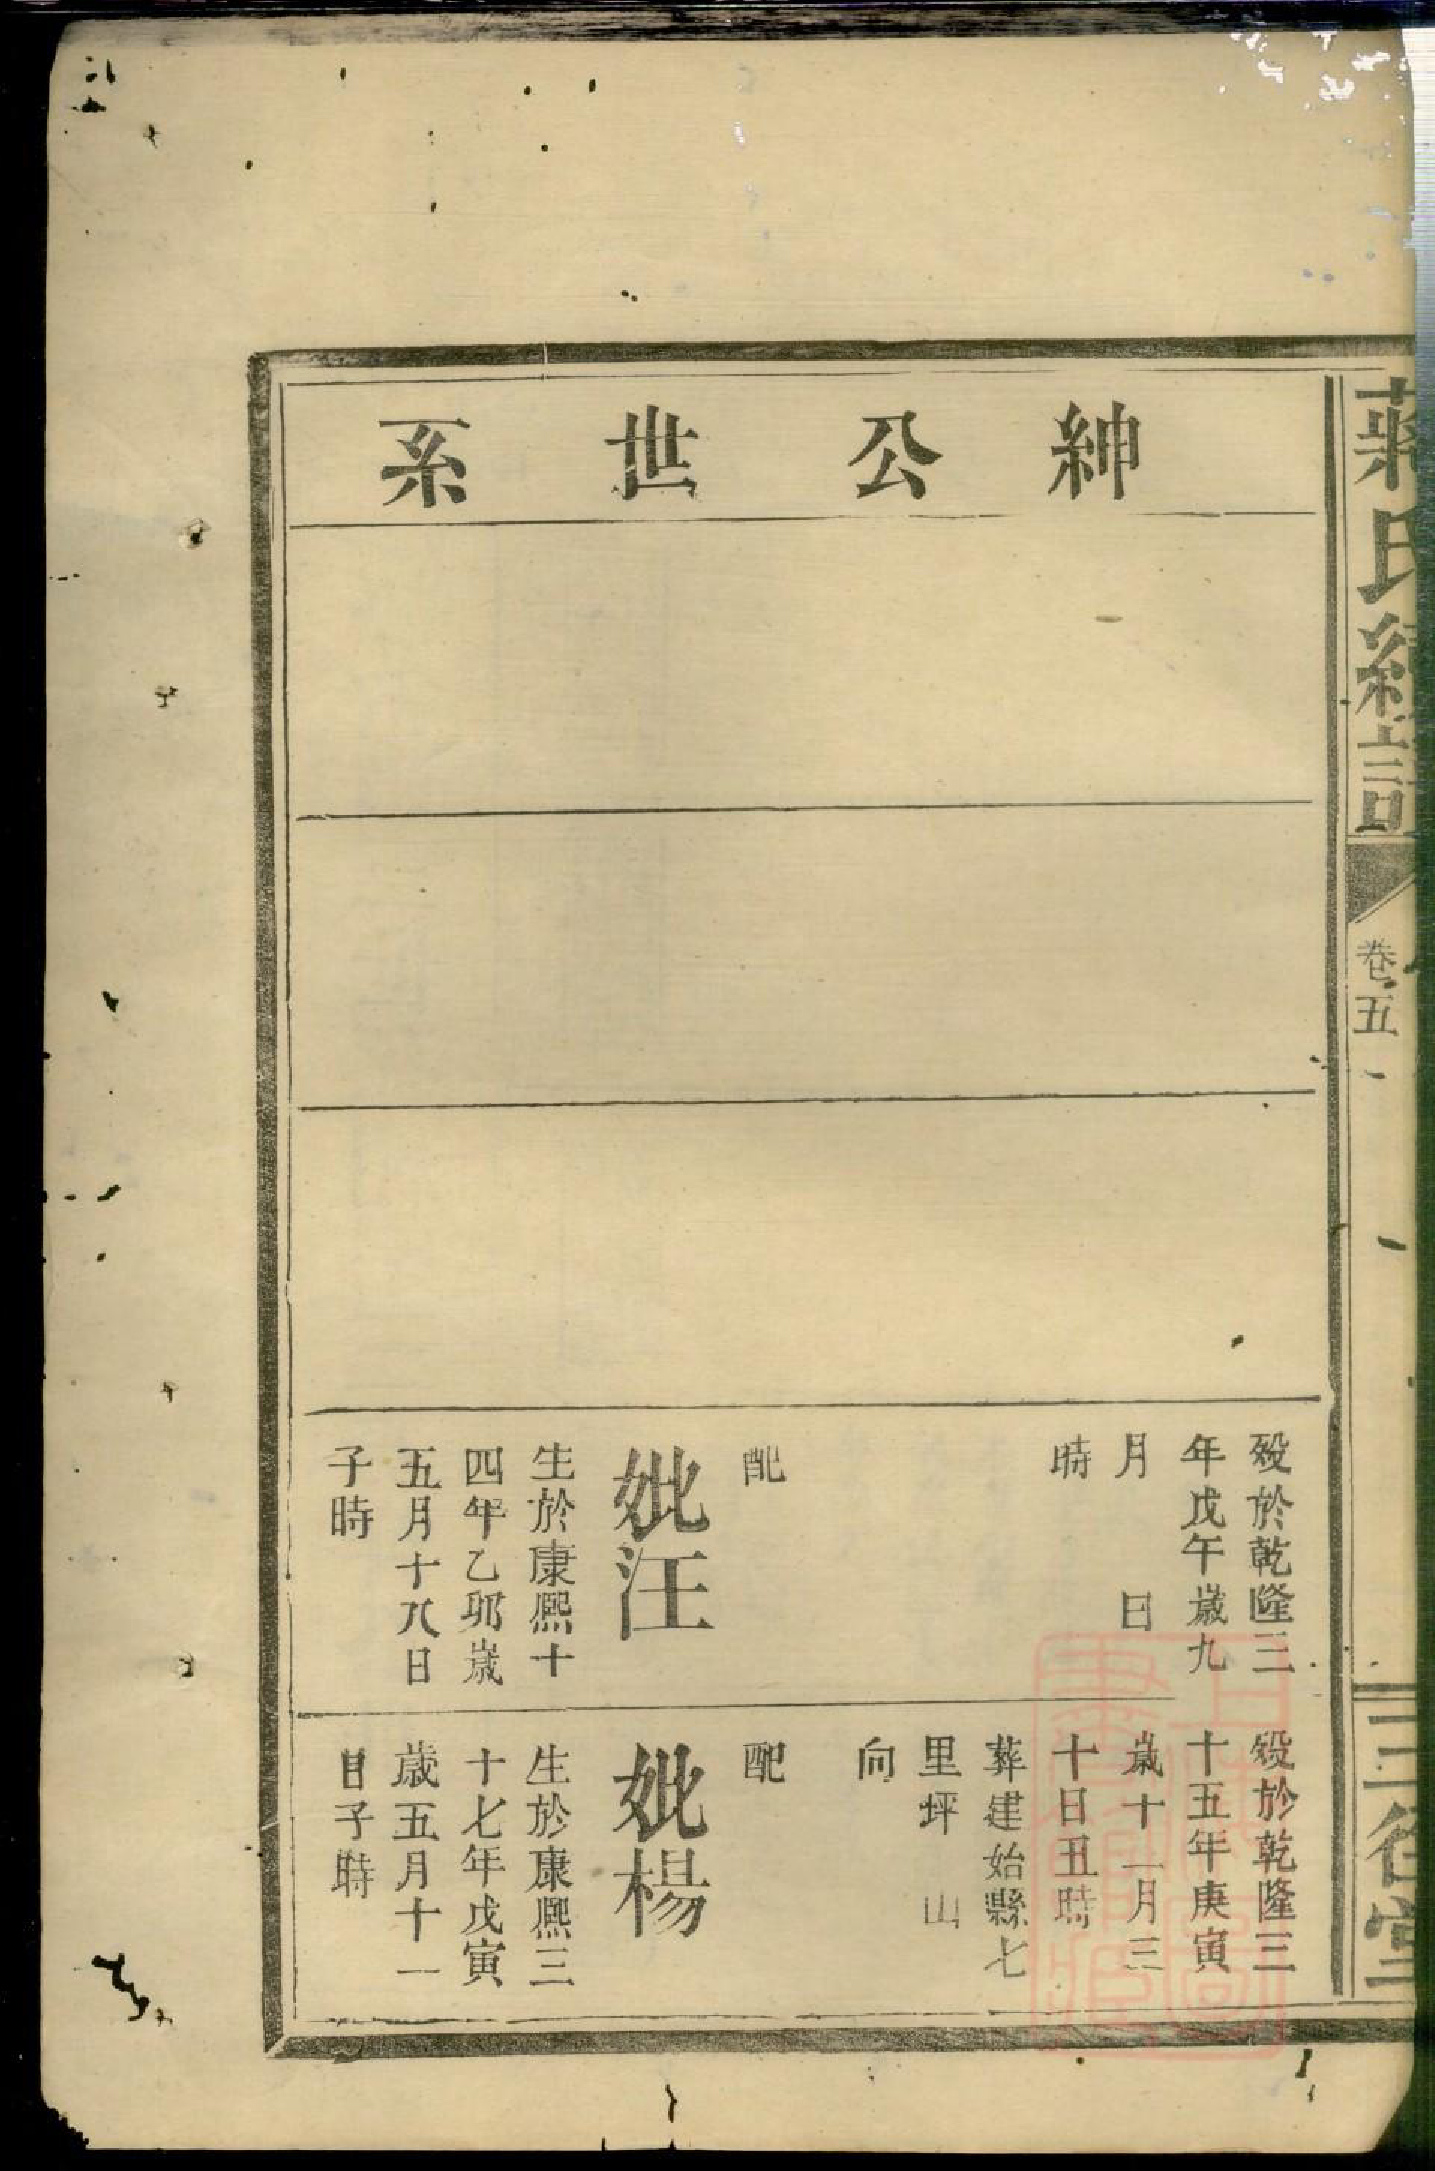 蔣氏續譜
卷五
三徑堂
紳公世系
歿於乾隆三
年戊午歲九
月　日
時
配
妣汪
生於康熙十
四年乙卯歲
五月十八日
子時
歿於乾隆三
十五年庚寅
歲十一月三
十日丑時
葬建始縣七
里坪　山
向
配
妣楊
生於康熙三
十七年戊寅
歲五月十一
日子時